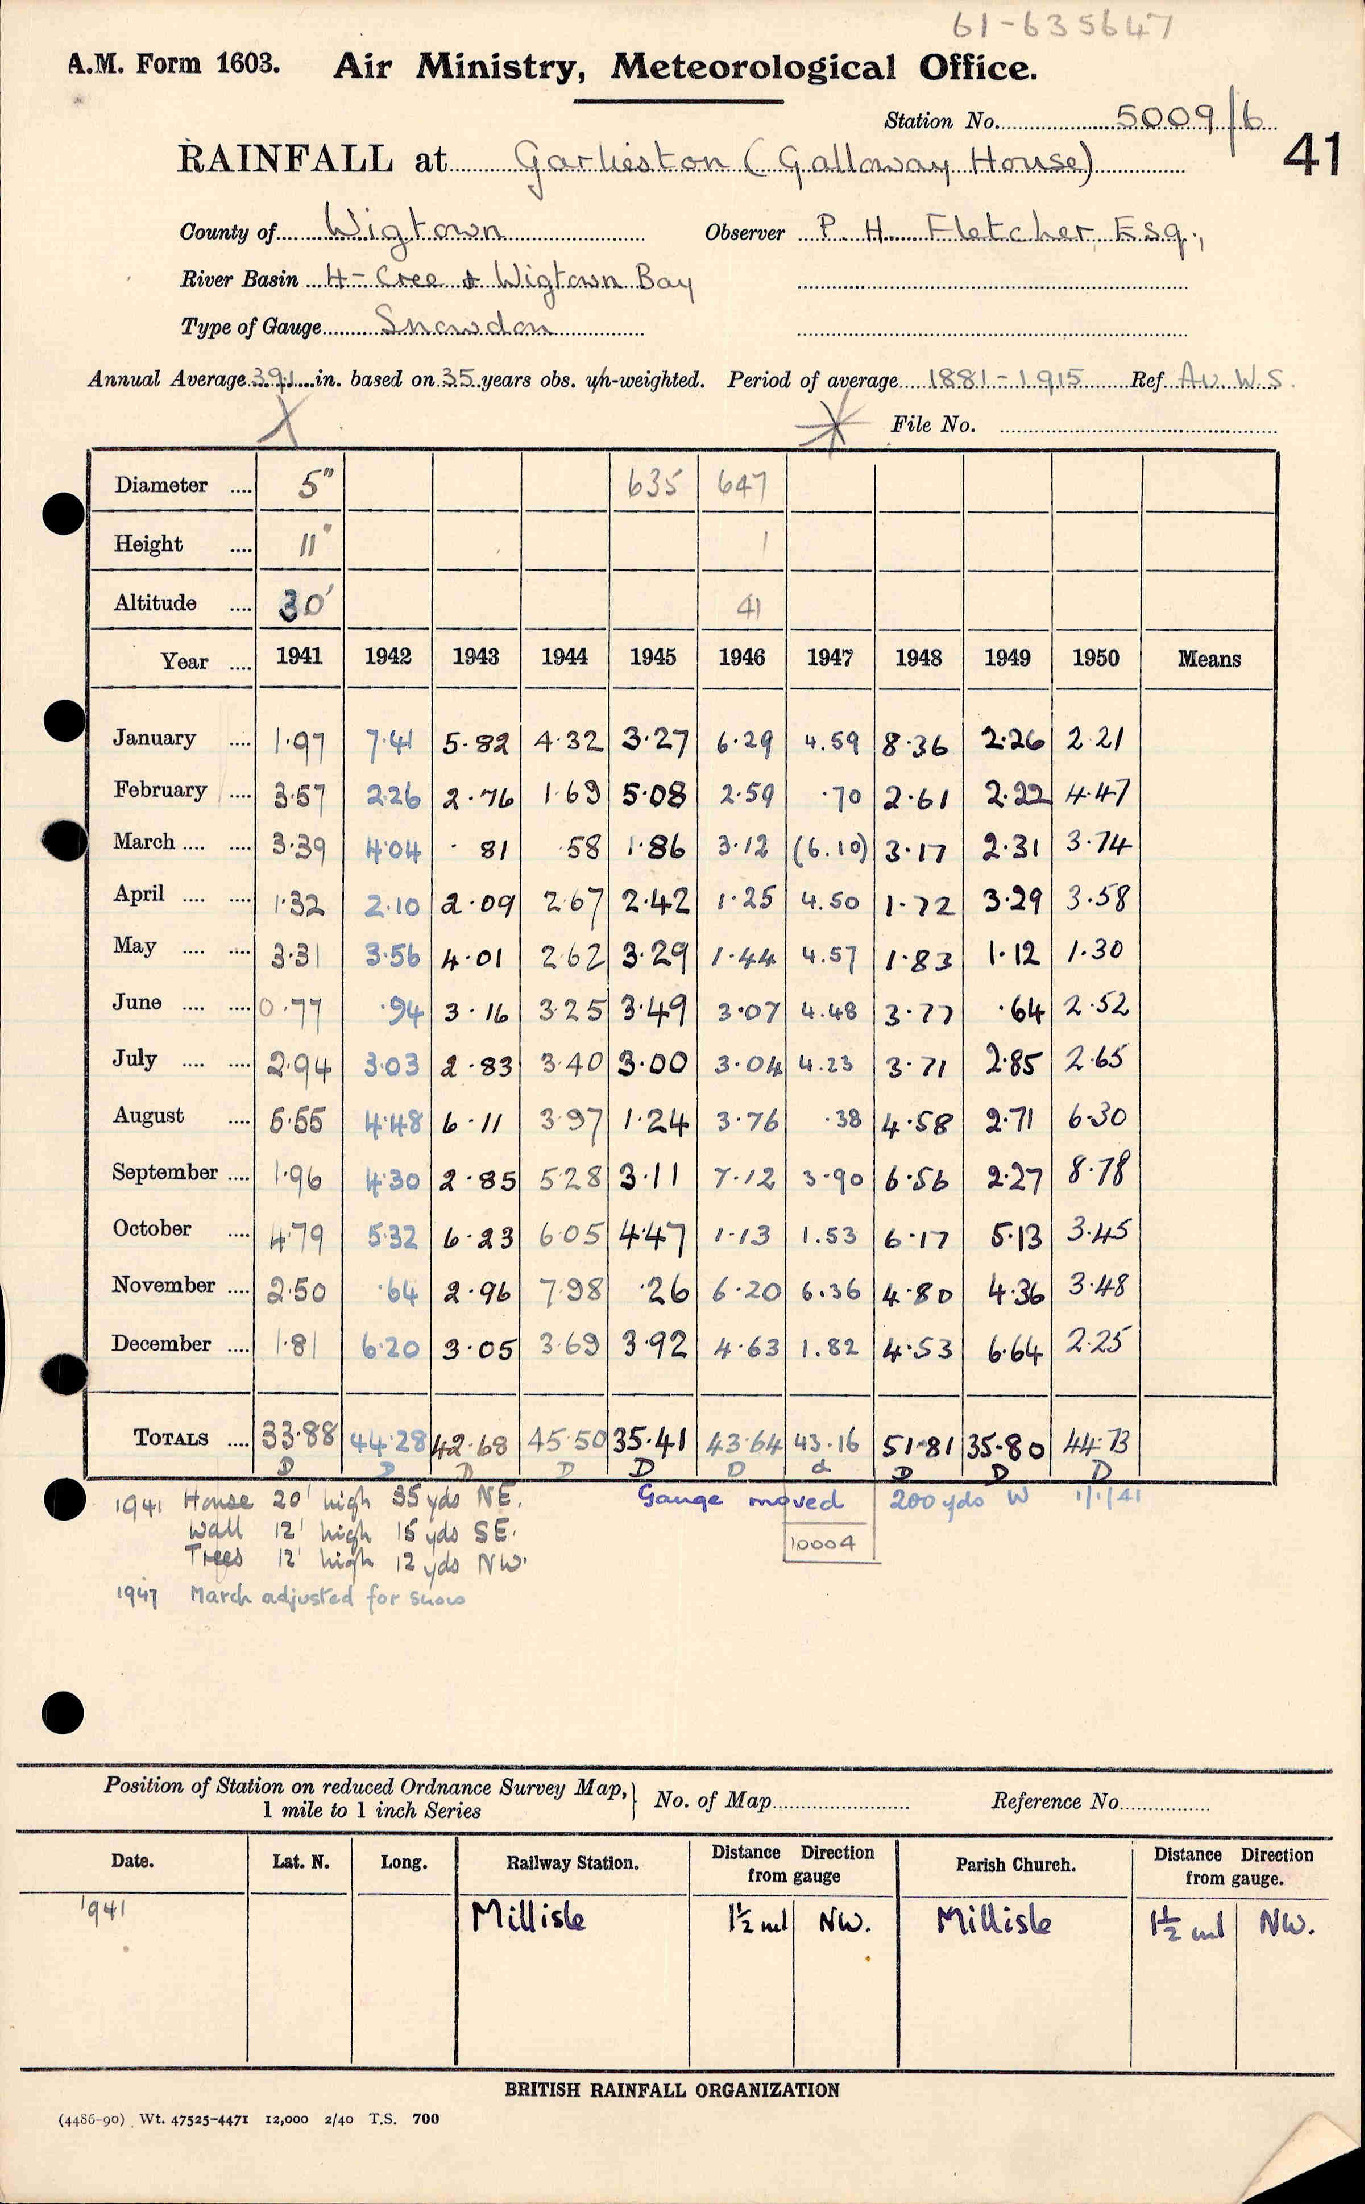 61-635647
A.M. Form 1603. Air Ministry, Meteorological Office.
Station No. 5009/6
41
RAINFALL at Garlieston (Galloway House)
County of Wigtown Observer P. H. Fletcher, Esq.,
River Basin 4- Cree & Wigtown Bay
Type of Gauge Snowdon
Annual Average 39.1 in. based on 35 years obs. un-weighted. Period of average 1881-1915 Ref. Av. W.S.
File No.
Diameter .... 5" 635 647
Height .... 11" 1
Altitude .... 30' 41
Year .... 1941 1942 1943 1944 1945 1946 1947 1948 1949 1950 Means
January .... 1.97 7.41 5.82 4.32 3.27 6.29 4.59 8.36 2.26 2.21
February .... 3.57 2.26 2.76 1.69 5.08 2.59 .70 2.61 2.22 4.47
March .... .... 3.39 4.04 .81 .58 1.86 3.12 (6.10) 3.17 2.31 3.74
April .... .... 1.32 2.10 2.09 2.67 2.42 1.25 4.50 1.72 3.29 3.58
May .... .... 3.31 3.56 4.01 2.62 3.29 1.44 4.57 1.83 1.12 1.30
June .... .... 0.77 .94 3.16 3.25 3.49 3.07 4.48 3.77 .64 2.52
July .... .... 2.94 3.03 2.83 3.40 3.00 3.04 4.23 3.71 2.85 2.65
August .... 5.55 4.48 6.11 3.97 1.24 3.76 .38 4.58 2.71 6.30
September .... 1.96 4.30 2.85 5.28 3.11 7.12 3.90 6.56 2.27 8.78
October .... 4.79 5.32 6.23 6.05 4.47 1.13 1.53 6.17 5.13 3.45
November .... 2.50 .64 2.96 7.98 .26 6.20 6.36 4.80 4.36 3.48
December .... 1.81 6.20 3.05 3.69 3.92 4.63 1.82 4.53 6.64 2.25
TOTALS .... 33.88 44.28 42.68 45.50 35.41 43.64 43.16 51.81 35.80 44.73
D D D D D D d D D D
1941 House 20' high 35 yds NE. Gauge moved 200 yds W 1/1/41
Wall 12' high 15 yds SE.
Trees 12' high 12 yds NW.
10004
1947 March adjusted for snow
Position of Station on reduced Ordnance Survey Map, 1 mile to 1 inch Series } No. of Map Reference No.
Date. Lat. N. Long. Railway Station. Distance Direction from gauge Parish Church. Distance Direction from gauge.
1941 Millisle 1½ ml NW. Millisle 1½ ml NW.
BRITISH RAINFALL ORGANIZATION
(4486-90) Wt. 47525-4471 12,000 2/40 T.S. 700